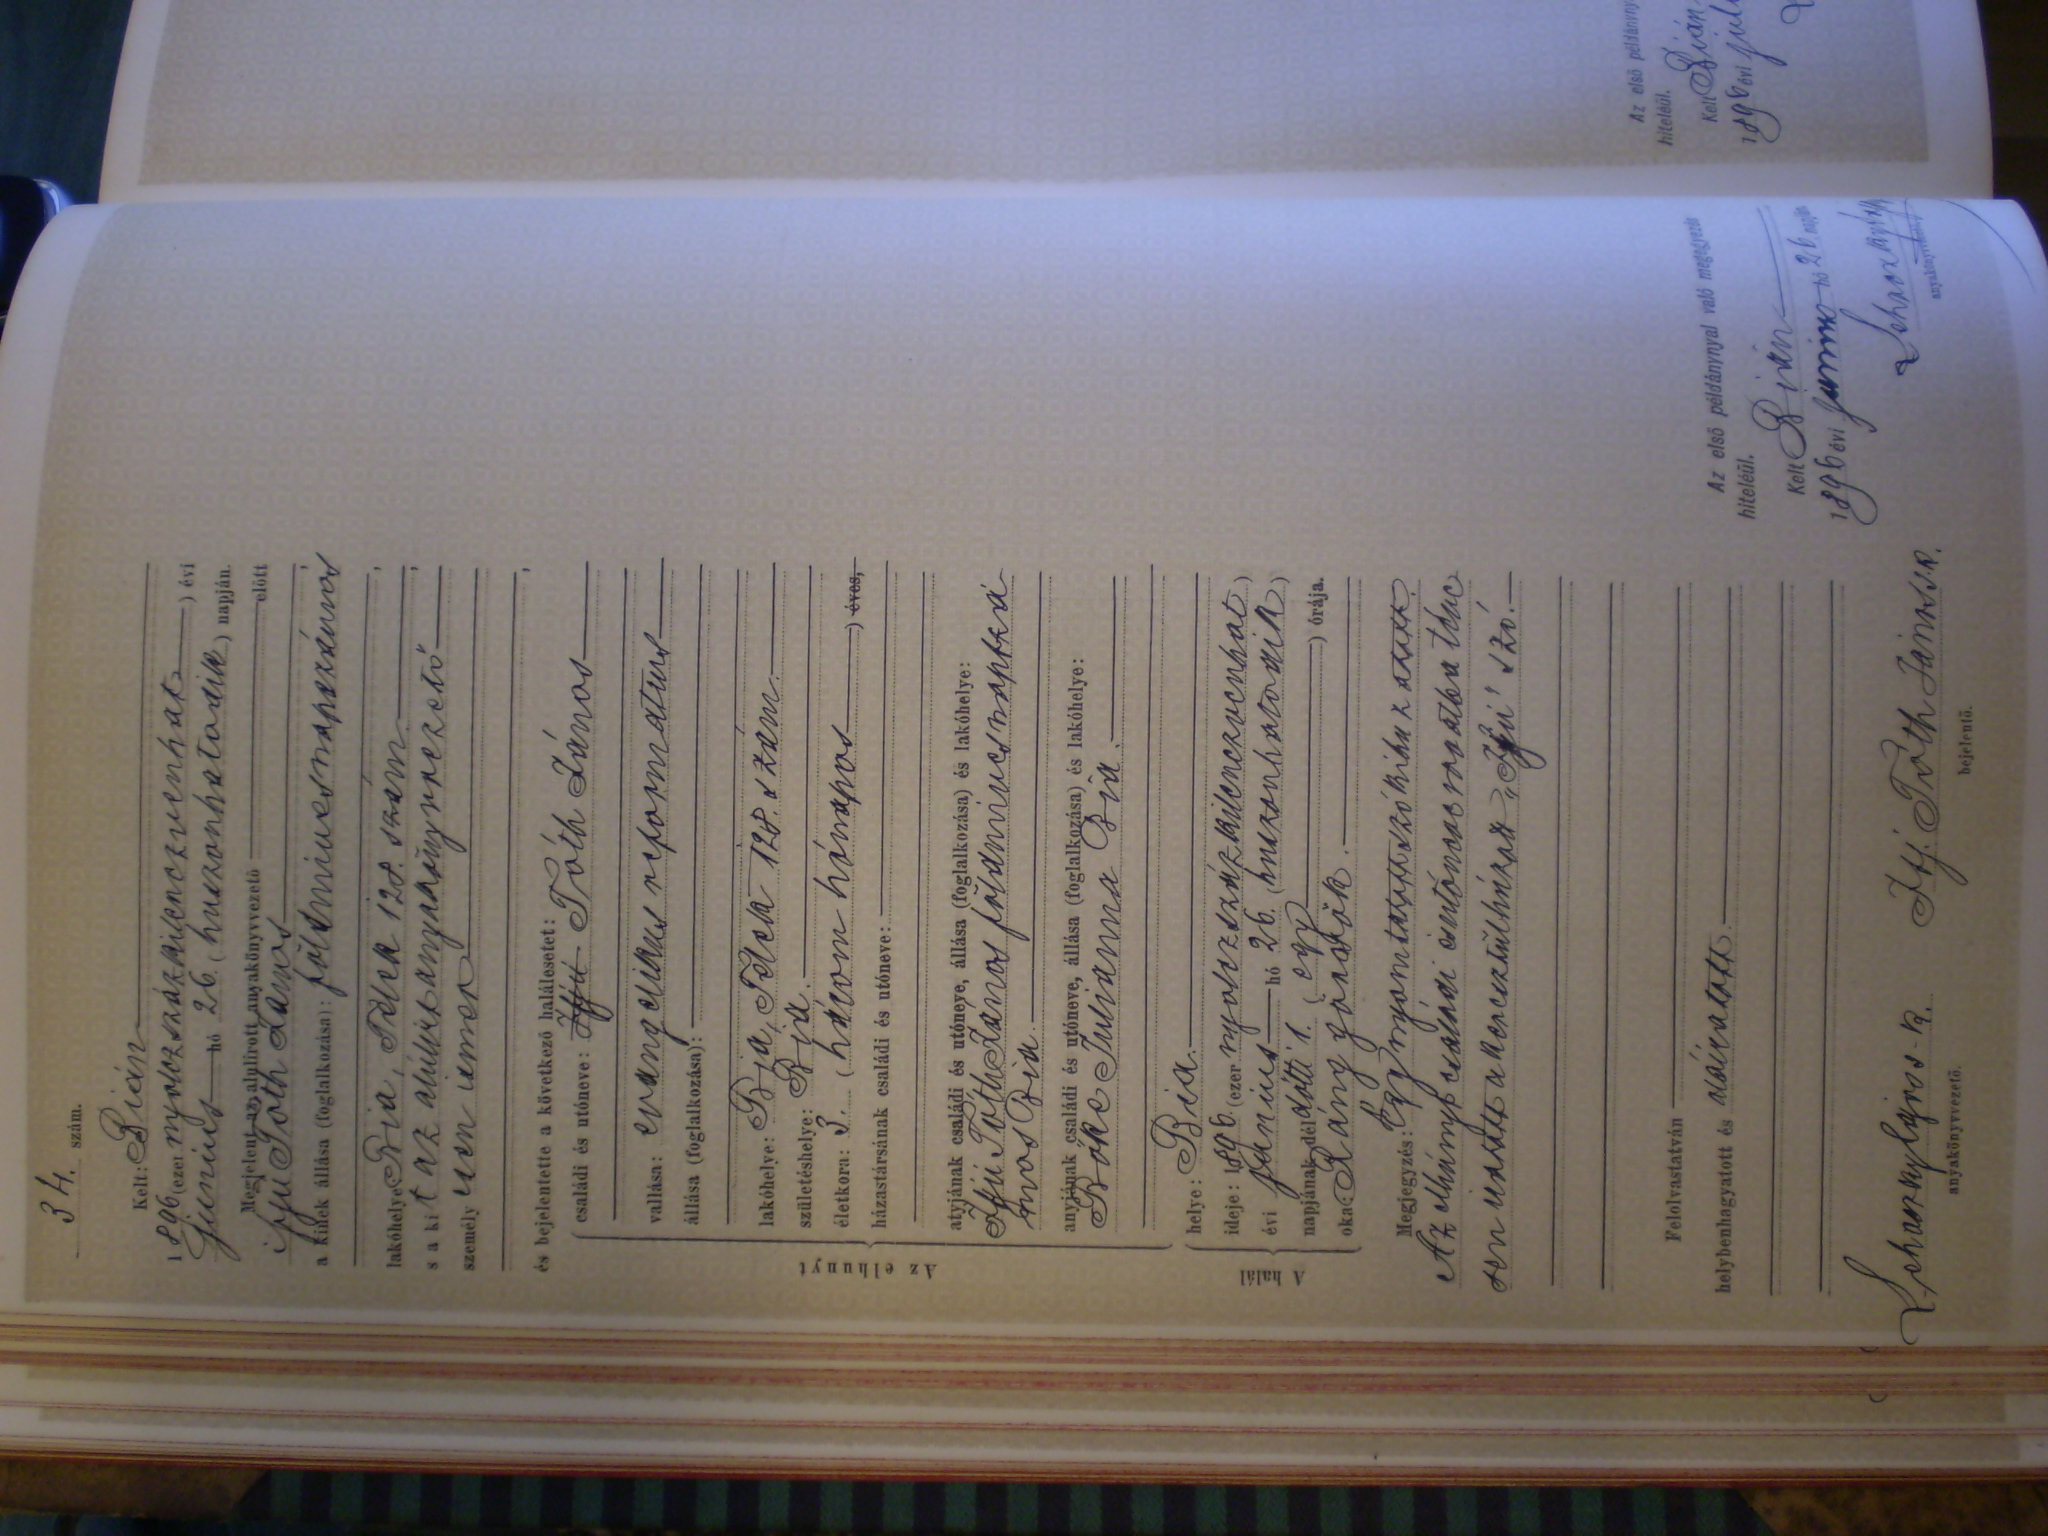 34. szám.
Kelt: Bián
1896 (ezer nyolczszázkilenczvenhat) évi
Junius hó 26. (huszonhatodik) napján.
Megjelent az alulírott anyakönyvvezető előtt
ifjú Tóth János
a kinek állása (foglalkozása): földmivesnapszámos,
lakóhelye Bia, Telek 128. szám,
s a kit az alulirt anyakönyvvezető
személyesen ismer,
és bejelentette a következő halálesetet:
Az elhunyt
családi és utóneve: Ifjú Tóth János
vallása: evangelikus reformatus
állása (foglalkozása):
lakóhelye: Bia, Telek 128. szám.
születéshelye: Bia.
életkora: 3. (három hónapos) éves,
házastársának családi és utóneve:
atyjának családi és utóneve, állása (foglalkozása) és lakóhelye:
Ifjú Tóth János földmivesnapszá
mos Bia.
anyjának családi és utóneve, állása (foglalkozása) és lakóhelye:
Bőke Julianna Bia.
A halál
helye: Bia.
ideje: 1896. (ezer nyolczszázkilenczvenhat)
évi junius hó 26. (huszonhatodik)
napjának dél előtti 1. (egy) órája.
oka: Ráng görcsök.
Megjegyzés: Egy nyomtatott szó hibázakk.
Az elhányt családi és utónac rovatba téve
sen iratott a keresztülhúzott „Ifjú" szó.
Felolvastatván
helybenhagyatott és aláiratott.
anyakönyvvezető.
Ifj. Tóth János s.k.
bejelentő.
Az első példánynyal való megegyezés
hiteléül.
Kelt Bián
1896 évi junius hó 26 napján
anyakönyvvezető
Az első példányny
hiteléül.
Kelt Bián
1896 évi juli